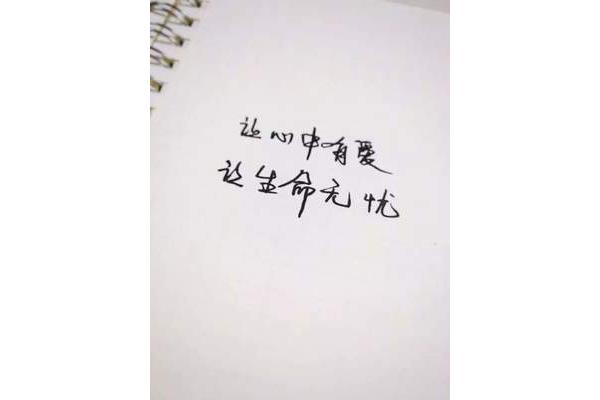 让心中有爱
让生命无忧